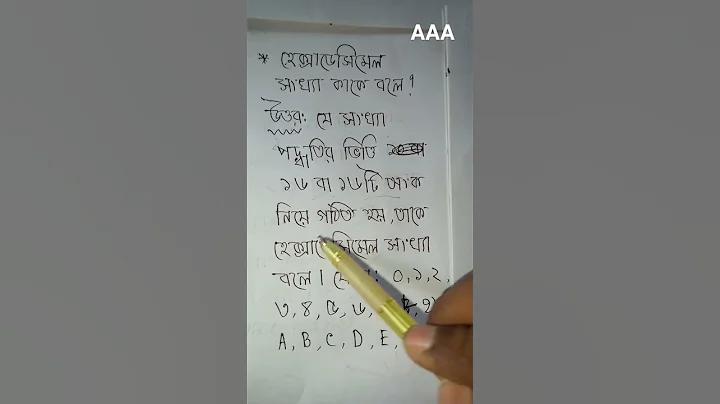 AAA
* হেক্সাডেসিমেল
সংখ্যা কাকে বলে?
উত্তর: যে সংখ্যা
পদ্ধতির ভিত্তি
১৬ বা ১৬টি অংক
নিয়ে গঠিত হয়, তাকে
হেক্সাডেসিমেল সংখ্যা
বলে। 0, ১, ২,
৩, ৪, ৫, ৬,
A, B, C, D, E,